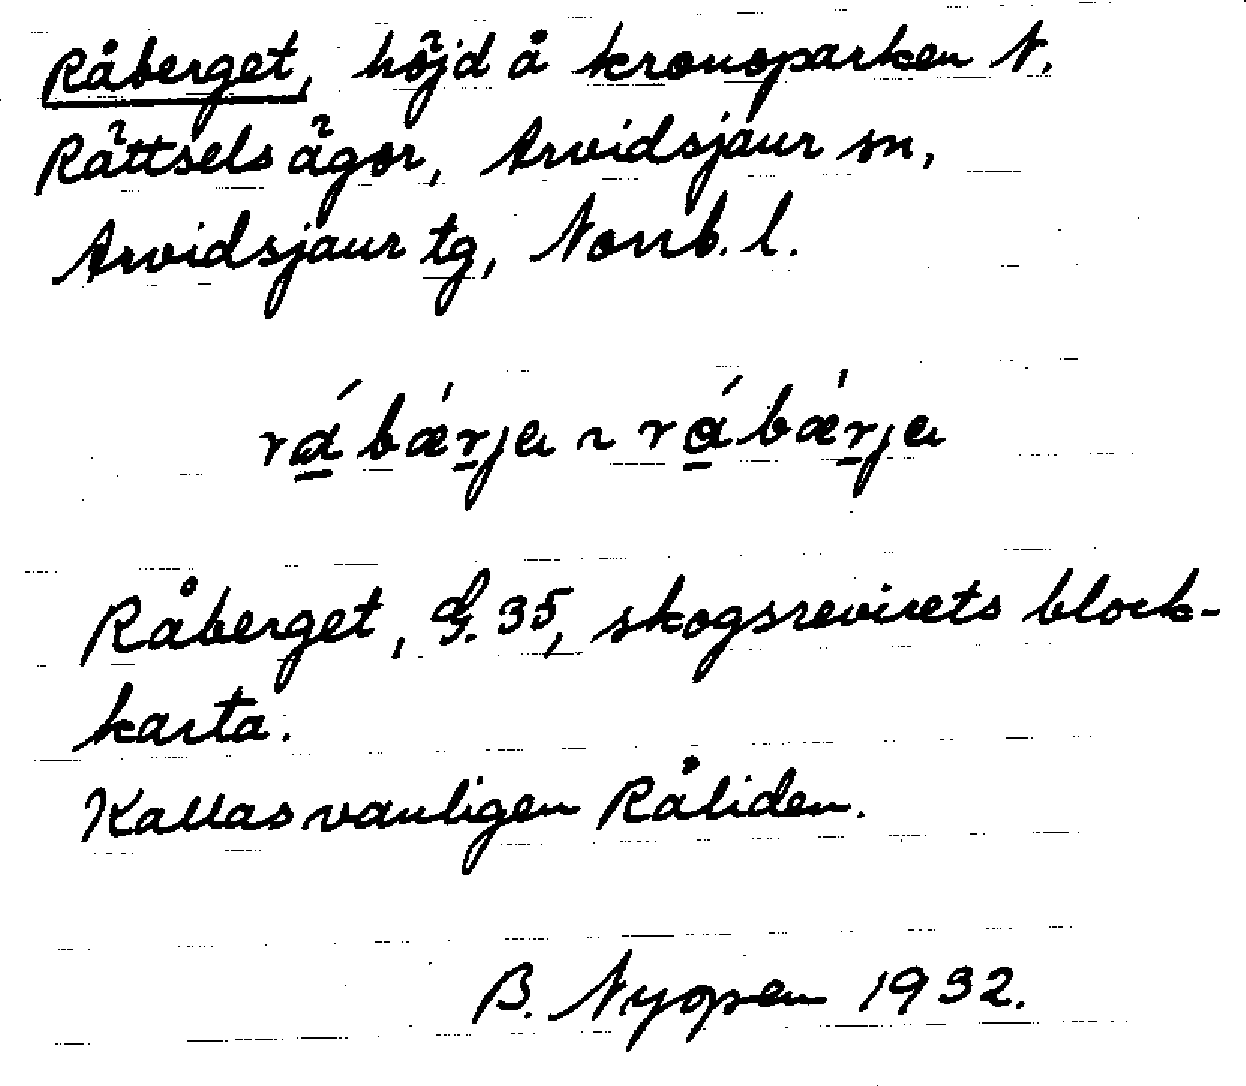 Råberget, höjd å kronoparken N.
Rättsels ägor, Arvidsjaur sn,
Arvidsjaur tg, Norrb. l.
rá̱bæ̀ṟja ~ rá̱bæ̀ṟja
Råberget, G. 35, skogsrevirets block-
karta.
Kallas vanligen Råliden.
B. Nyopen 1932.